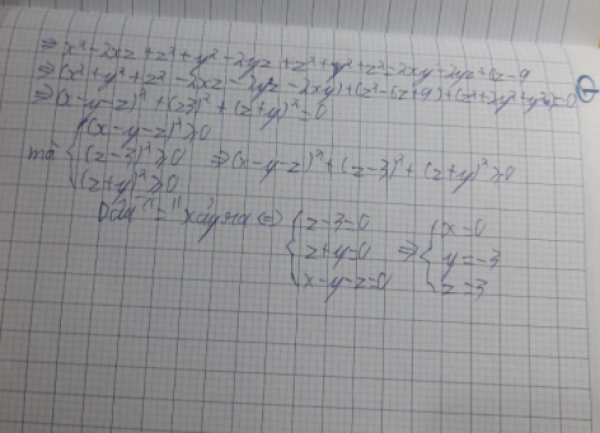 ⇒ x² - 2xz + z² + y² - 2yz + z² + y² + z² = 2xy - 2yz + 6z - 9
⇒ (x² + y² + z² - 2xz - 2yz - 2xy) + (z² - 6z + 9) + (z² + 2yz + y²) = 0
⇒ (x - y - z)² + (z - 3)² + (z + y)² = 0
mà { (x - y - z)² ≥ 0
(z - 3)² ≥ 0 ⇒ (x - y - z)² + (z - 3)² + (z + y)² ≥ 0
(z + y)² ≥ 0
Dấu "=" xảy ra ⇔ { z - 3 = 0 ⇒ { x = 0
z + y = 0 y = -3
x - y - z = 0 z = 3